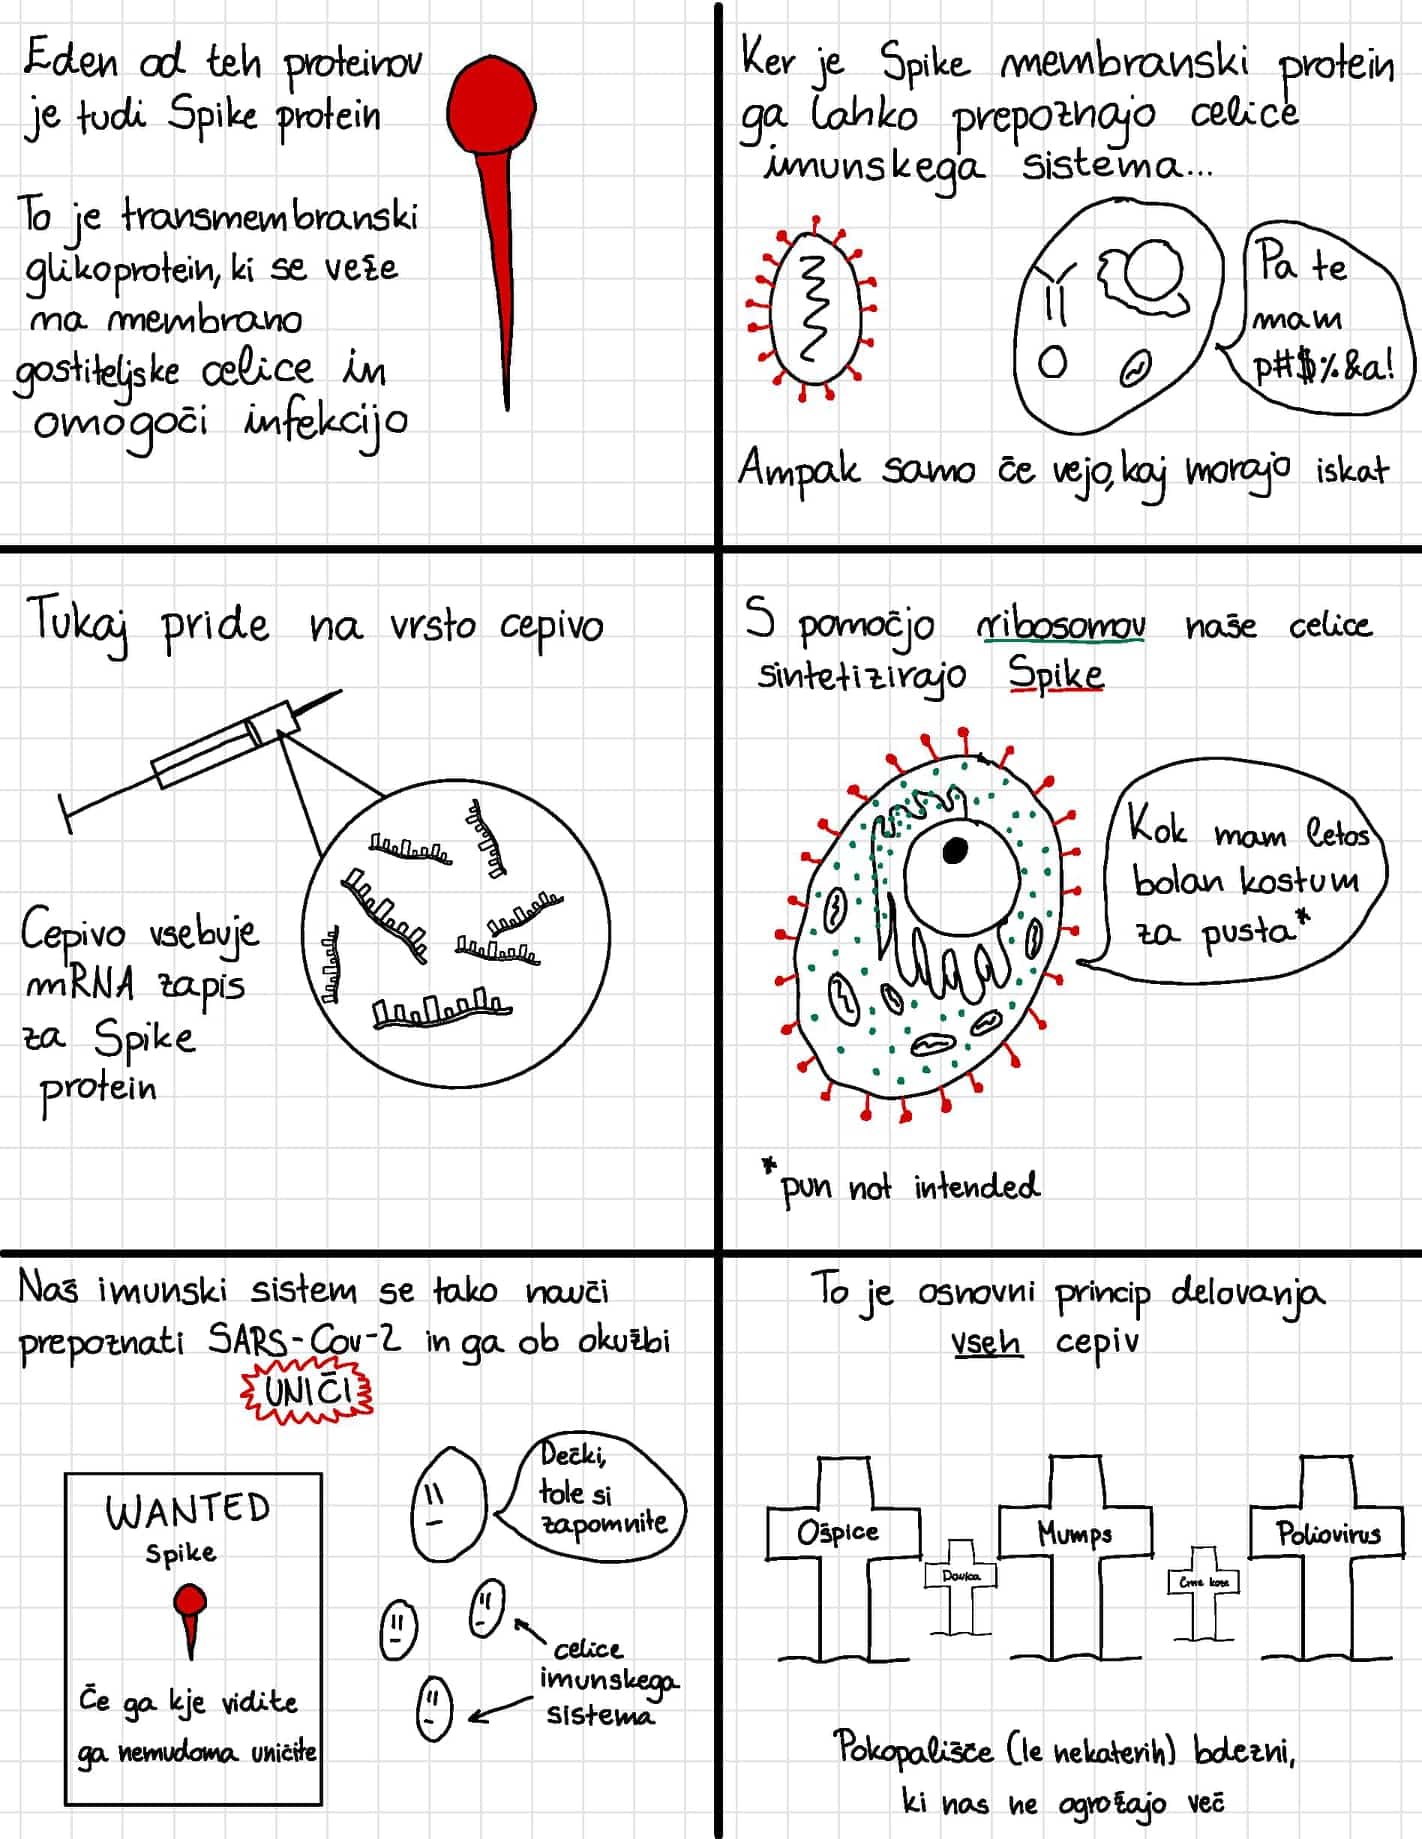 Eden od teh proteinov
je tudi Spike protein
To je transmembranski
glikoprotein, ki se veže
na membrano
gostiteljske celice in
omogoči infekcijo
Ker je Spike membranski protein
ga lahko prepoznajo celice
imunskega sistema...
Pa te
mam
p#$%&a!
Ampak samo če vejo, kaj morajo iskat
Tukaj pride na vrsto cepivo
Cepivo vsebuje
mRNA zapis
za Spike
protein
S pomočjo ribosomov naše celice
sintetizirajo Spike
Kok mam letos
bolan kostum
za pusta*
*pun not intended
Naš imunski sistem se tako nauči
prepoznati SARS-Cov-2 in ga ob okužbi
UNIČI
WANTED
Spike
Če ga kje vidite
ga nemudoma uničite
Dečki,
tole si
zapomnite
celice
imunskega
sistema
To je osnovni princip delovanja
vseh cepiv
Ošpice
Davica
Mumps
Črne koze
Poliovirus
Pokopališče (le nekaterih) bolezni,
ki nas ne ogrožajo več